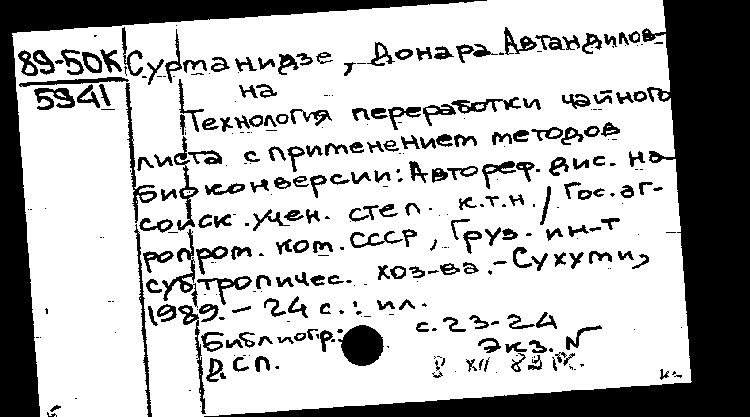 89-50К
5941
Сурманидзе, Донара Автандилов-
на
Технология переработки чайного
листа с применением методов
биоконверсии: Автореф. дис. на
соиск. учен. степ. к.т.н. / Гос. аг-
ропром. ком. СССР, Груз. ин-т
субтропичес. хоз-ва.-Сухуми,
1989.- 24 с.: ил.
Библиогр.: с. 23-24
Д.С.П. Экз. №
8 XII 89